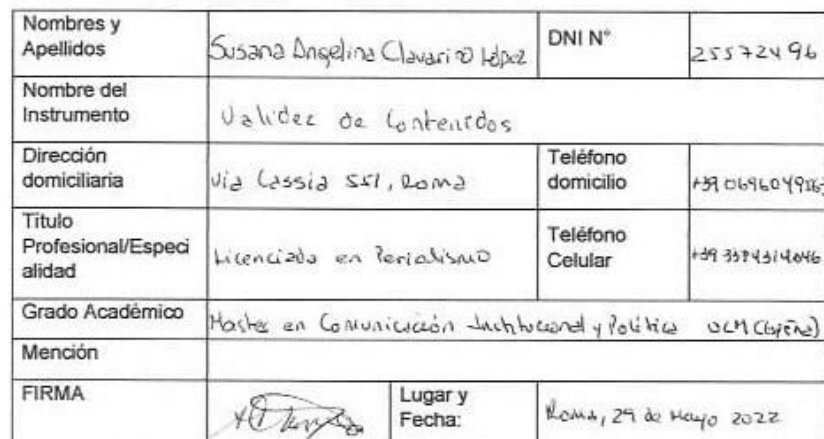 Nombres y
Apellidos
Susana Angelina Clavarino López
DNI N°
25572496
Nombre del
Instrumento
Validez de Contenidos
Dirección
domiciliaria
Via Cassia 551, Roma
Teléfono
domicilio
Titulo
Profesional/Especi
alidad
Licenciada en Periodismo
Teléfono
Celular
Grado Académico
Master en Comunicación Institucional y Política UCM (España)
Mención
FIRMA
Lugar y
Fecha:
Roma, 29 de Mayo 2022